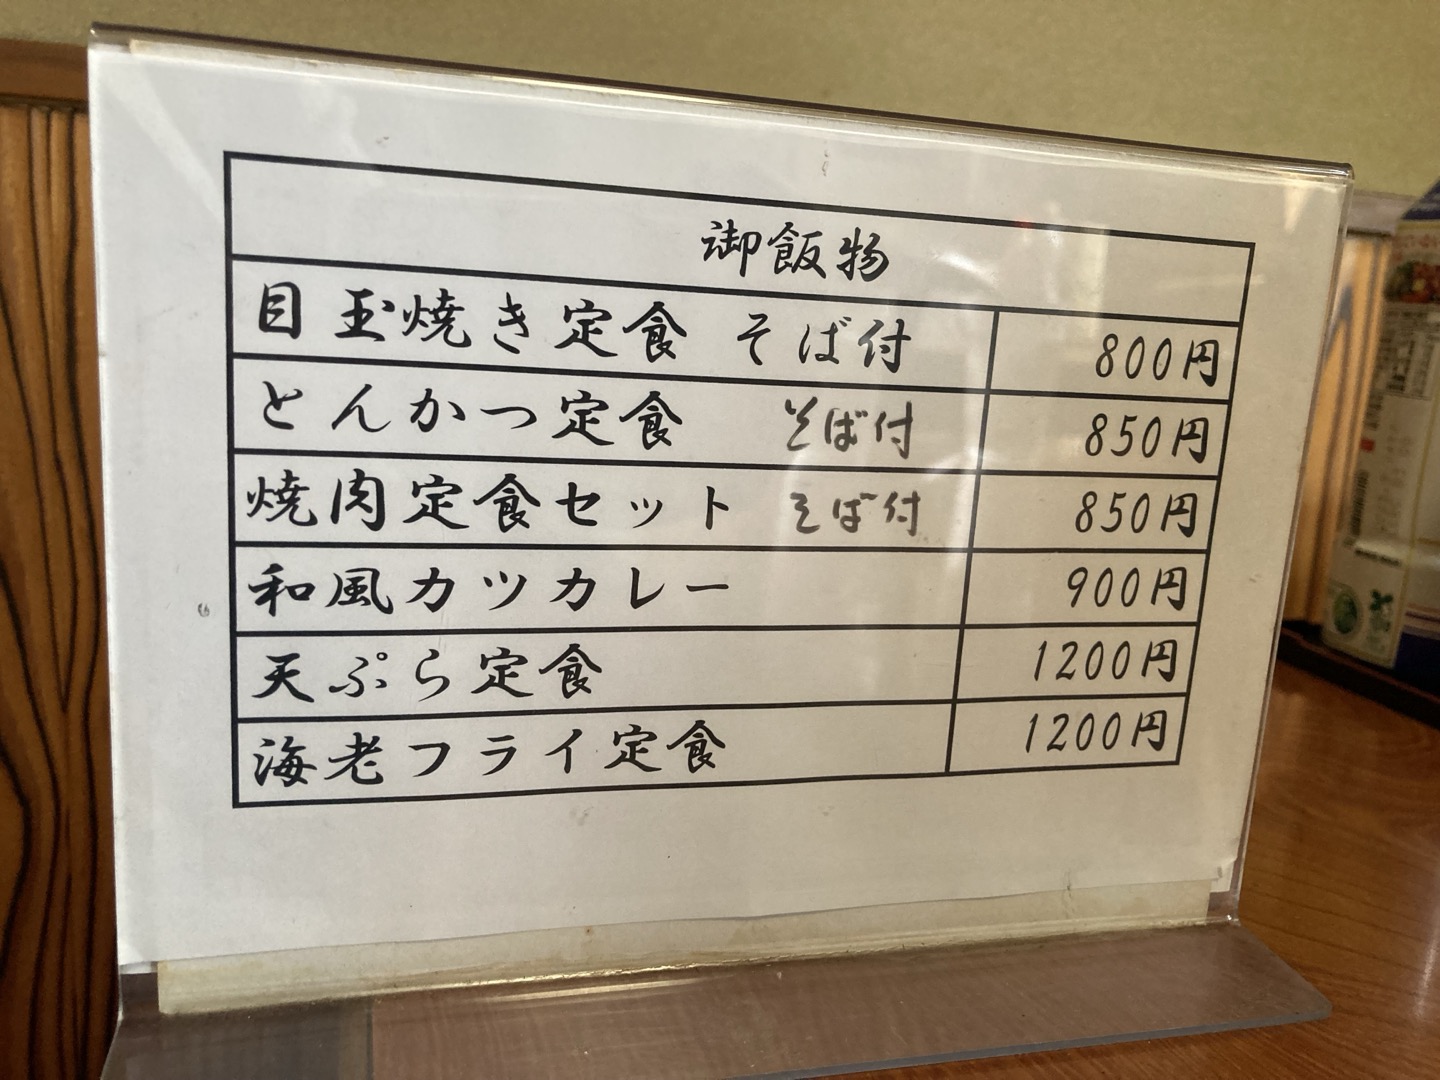 御飯物
目玉焼き定食 そば付 800円
とんかつ定食 そば付 850円
焼肉定食セット そば付 850円
和風カツカレー 900円
天ぷら定食 1200円
海老フライ定食 1200円